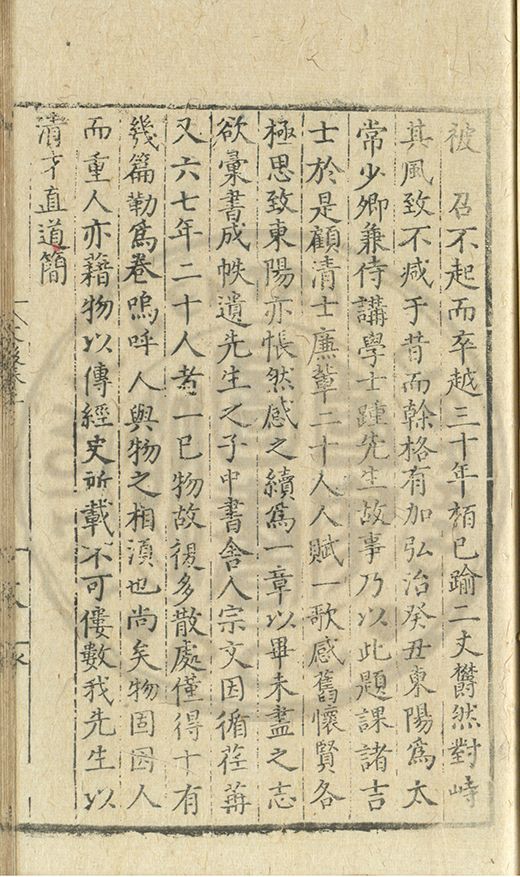 被 召不起而卒越三十年栢已踰二丈欝然對峙
其風致不减于昔而榦格有加弘治癸丑東陽爲太
常少卿兼侍講學士踵先生故事乃以此題課諸吉
士於是顧清士廉軰二十人人賦一歌感舊懷賢各
極思致東陽亦悵然感之續爲一章以畢未盡之志
欲彙書成帙遺先生之子中書舍人宗文因循荏苒
又六七年二十人者一已物故複多散處僅得十有
幾篇勒爲卷嗚呼人與物之相湏也尚矣物固因人
而重人亦藉物以傳經史所載不可僂數我先生以
清才直道簡